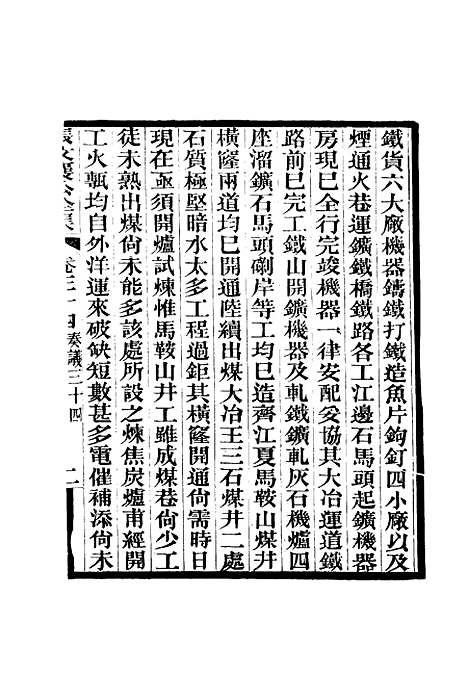 鐵貨六大廠機器鑄鐵打鐵造魚片鉤釘四小廠以及
煙通火巷運鑛鐵橋鐵路各工江邊石馬頭起鑛機器
房現已全行完竣機器一律安配妥協其大冶運道鐵
路前已完工鐵山開鑛機器及軋鐵鑛軋灰石機爐四
座溜鑛石馬頭磡岸等工均已造齊江夏馬鞍山煤井
橫窿兩道均已開通陸續出煤大冶王三石煤井二處
石質極堅暗水太多工程過鉅其橫窿開通尙需時日
現在亟須開爐試煉惟馬鞍山井工雖成煤巷尙少工
徒未熟出煤尙未能多該處所設之煉焦炭爐甫經開
工火甎均自外洋運來破缺短數甚多電催補添尙未
卷三十四 奏議三十四 二